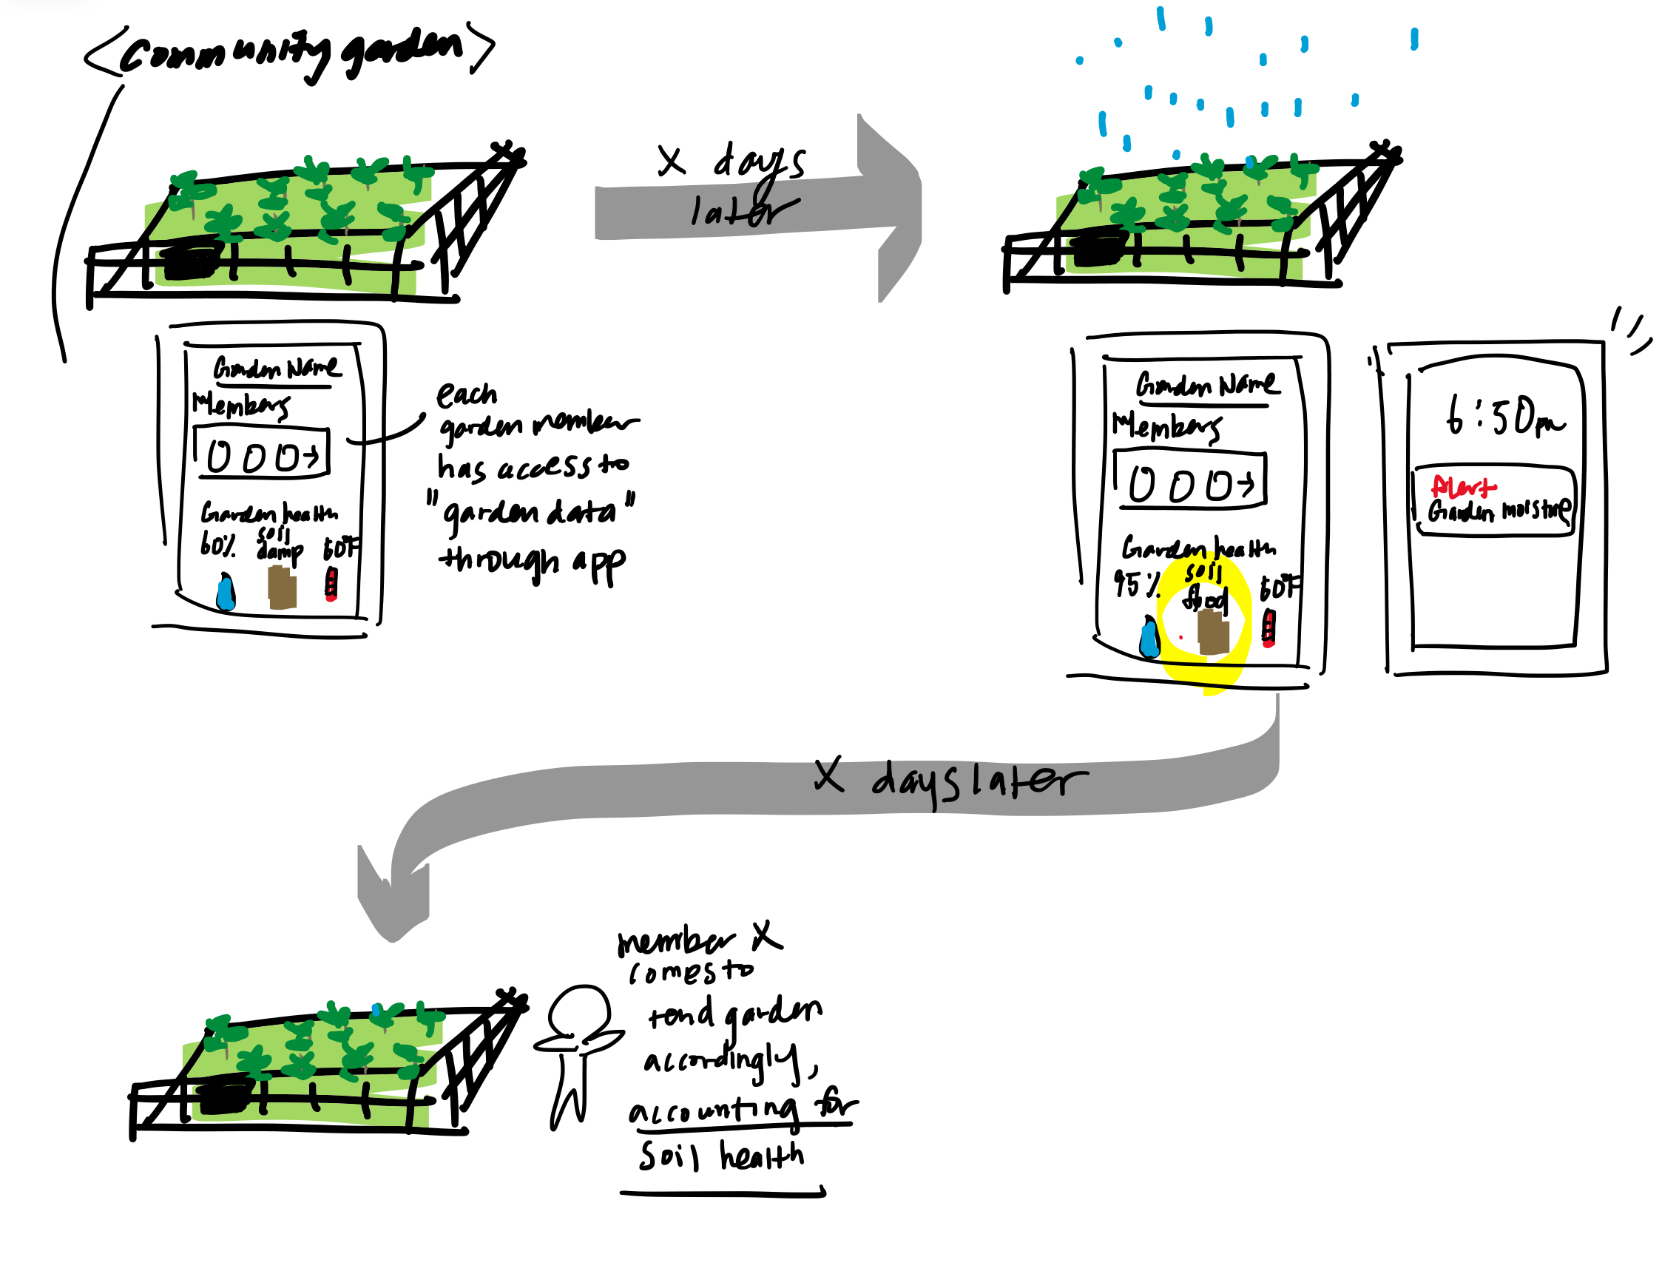 <Community garden>
X days
later
Garden Name
Members
000→
Garden health
60% soil damp 60°F
each
garden member
has access to
"garden data"
through app
Garden Name
Members
000→
Garden health
95% soil flood 60°F
6:50pm
Alert
Garden moisture
X days later
member X
comes to
tend garden
accordingly,
accounting for
soil health